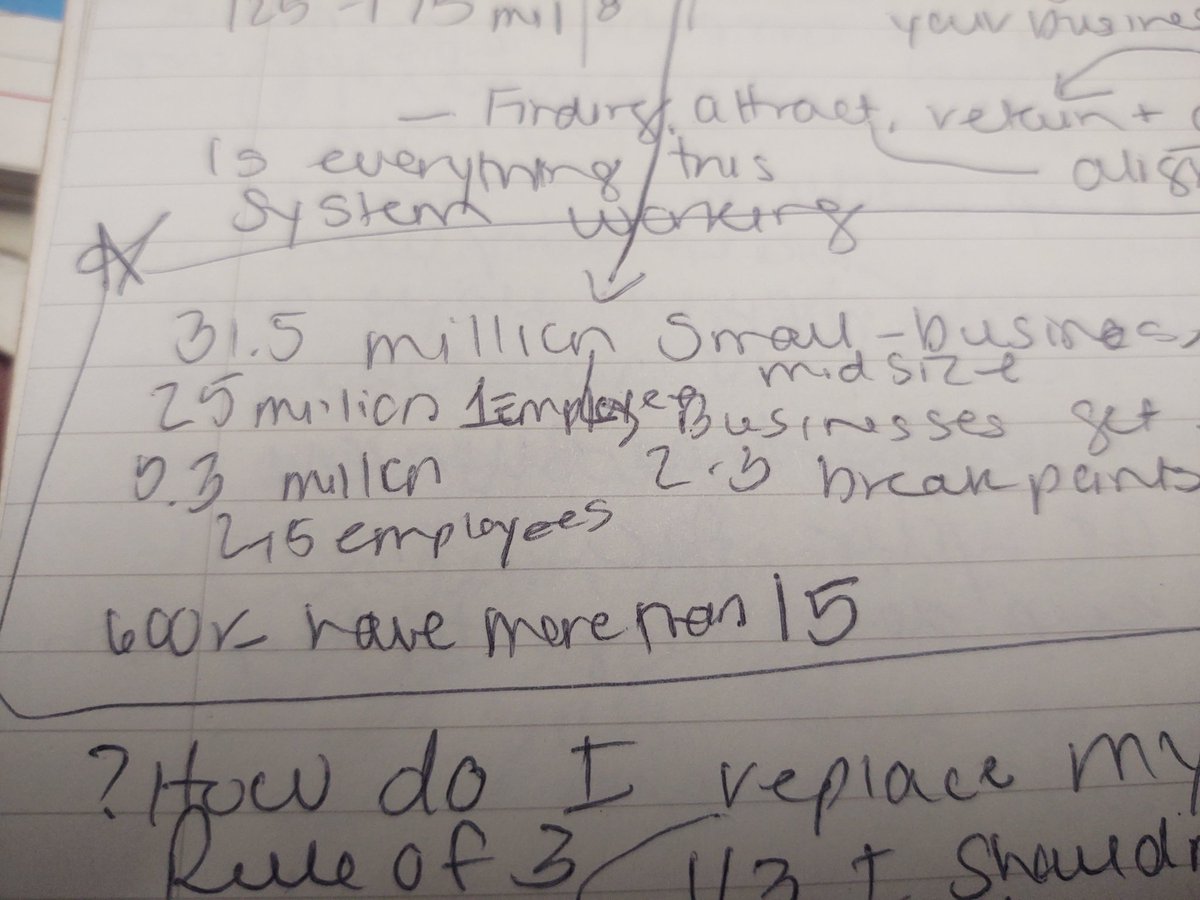 125 - 175 mil 8
your busines
- Finding, attract, retain + 
is everything this
align
System working
31.5 million Small - business
midsize
25 million 1 Employee Businesses get
5.3 millcn 2.3 break points
2,15 employees
600k have more than 15
? How do I replace my
Rule of 3 1/3 I Should